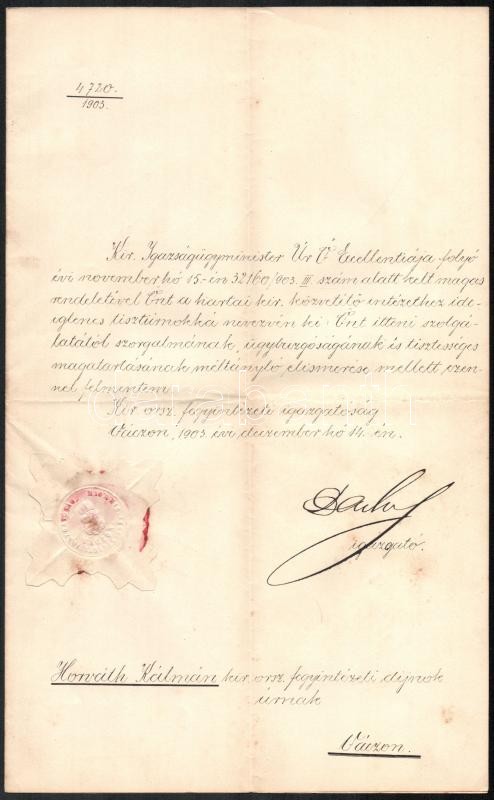 4720.
1903.
Kir. Igazságügyminister Úr Ő Excellentiája folyó
évi november hó 15-én 32160/903. III szám alatt kelt magas
rendeletével Önt a hartai kir. közvetitő intézethez ide-
iglenes tisztirnokká nevezvén ki Önt itteni szolgá-
latától szorgalmának, ügybuzgóságának és tisztességes
magatartásának méltányló elismerése mellett ezen-
nel felmentem.
Kir. orsz. fegyintézeti igazgatóság
Váczon, 1903. évi deczember hó 14-én.
igazgató.
Horváth Kálmán kir. orsz. fegyintézeti dijnok
úrnak
Váczon.